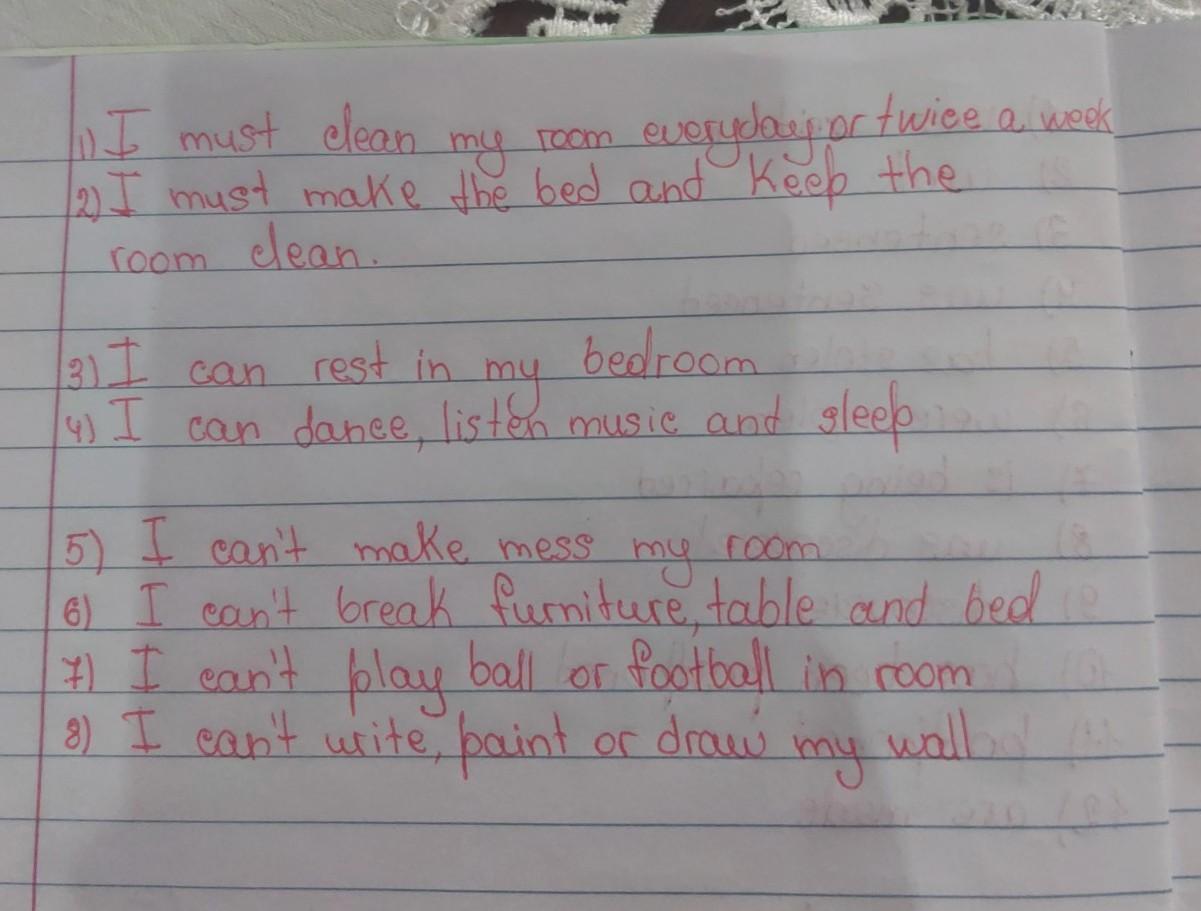 1) I must clean my room everyday or twice a week
2) I must make the bed and keep the
room clean.
3) I can rest in my bedroom
4) I can dance, listen music and sleep
5) I can't make mess my room
6) I can't break furniture, table and bed
7) I can't play ball or football in room
8) I can't write, paint or draw my wall